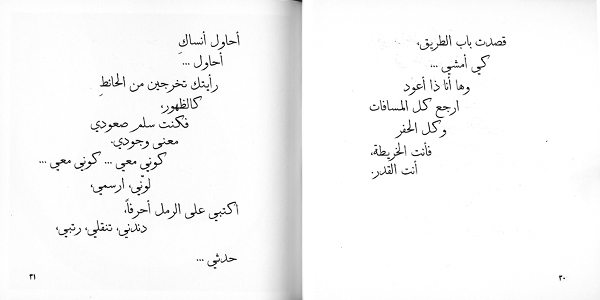 قصدت باب الطريق،
كي أمشي ...
وها أنا ذا أعود
ارجع كل المسافات
وكل الحفر
فأنت الخريطة،
أنت القدر.
٣٠
أحاول أنساكِ
أحاول ...
رأيتك تخرجين من الحائطِ
كالظهور،
فكنت سلم صعودي
معنى وجودي.
كوني معي ... كوني معي ...
لوّني، ارسمي،
اكتبي على الرمل أحرفاً،
دندني، تنقلي، رتبي،
حدثي ...
٣١